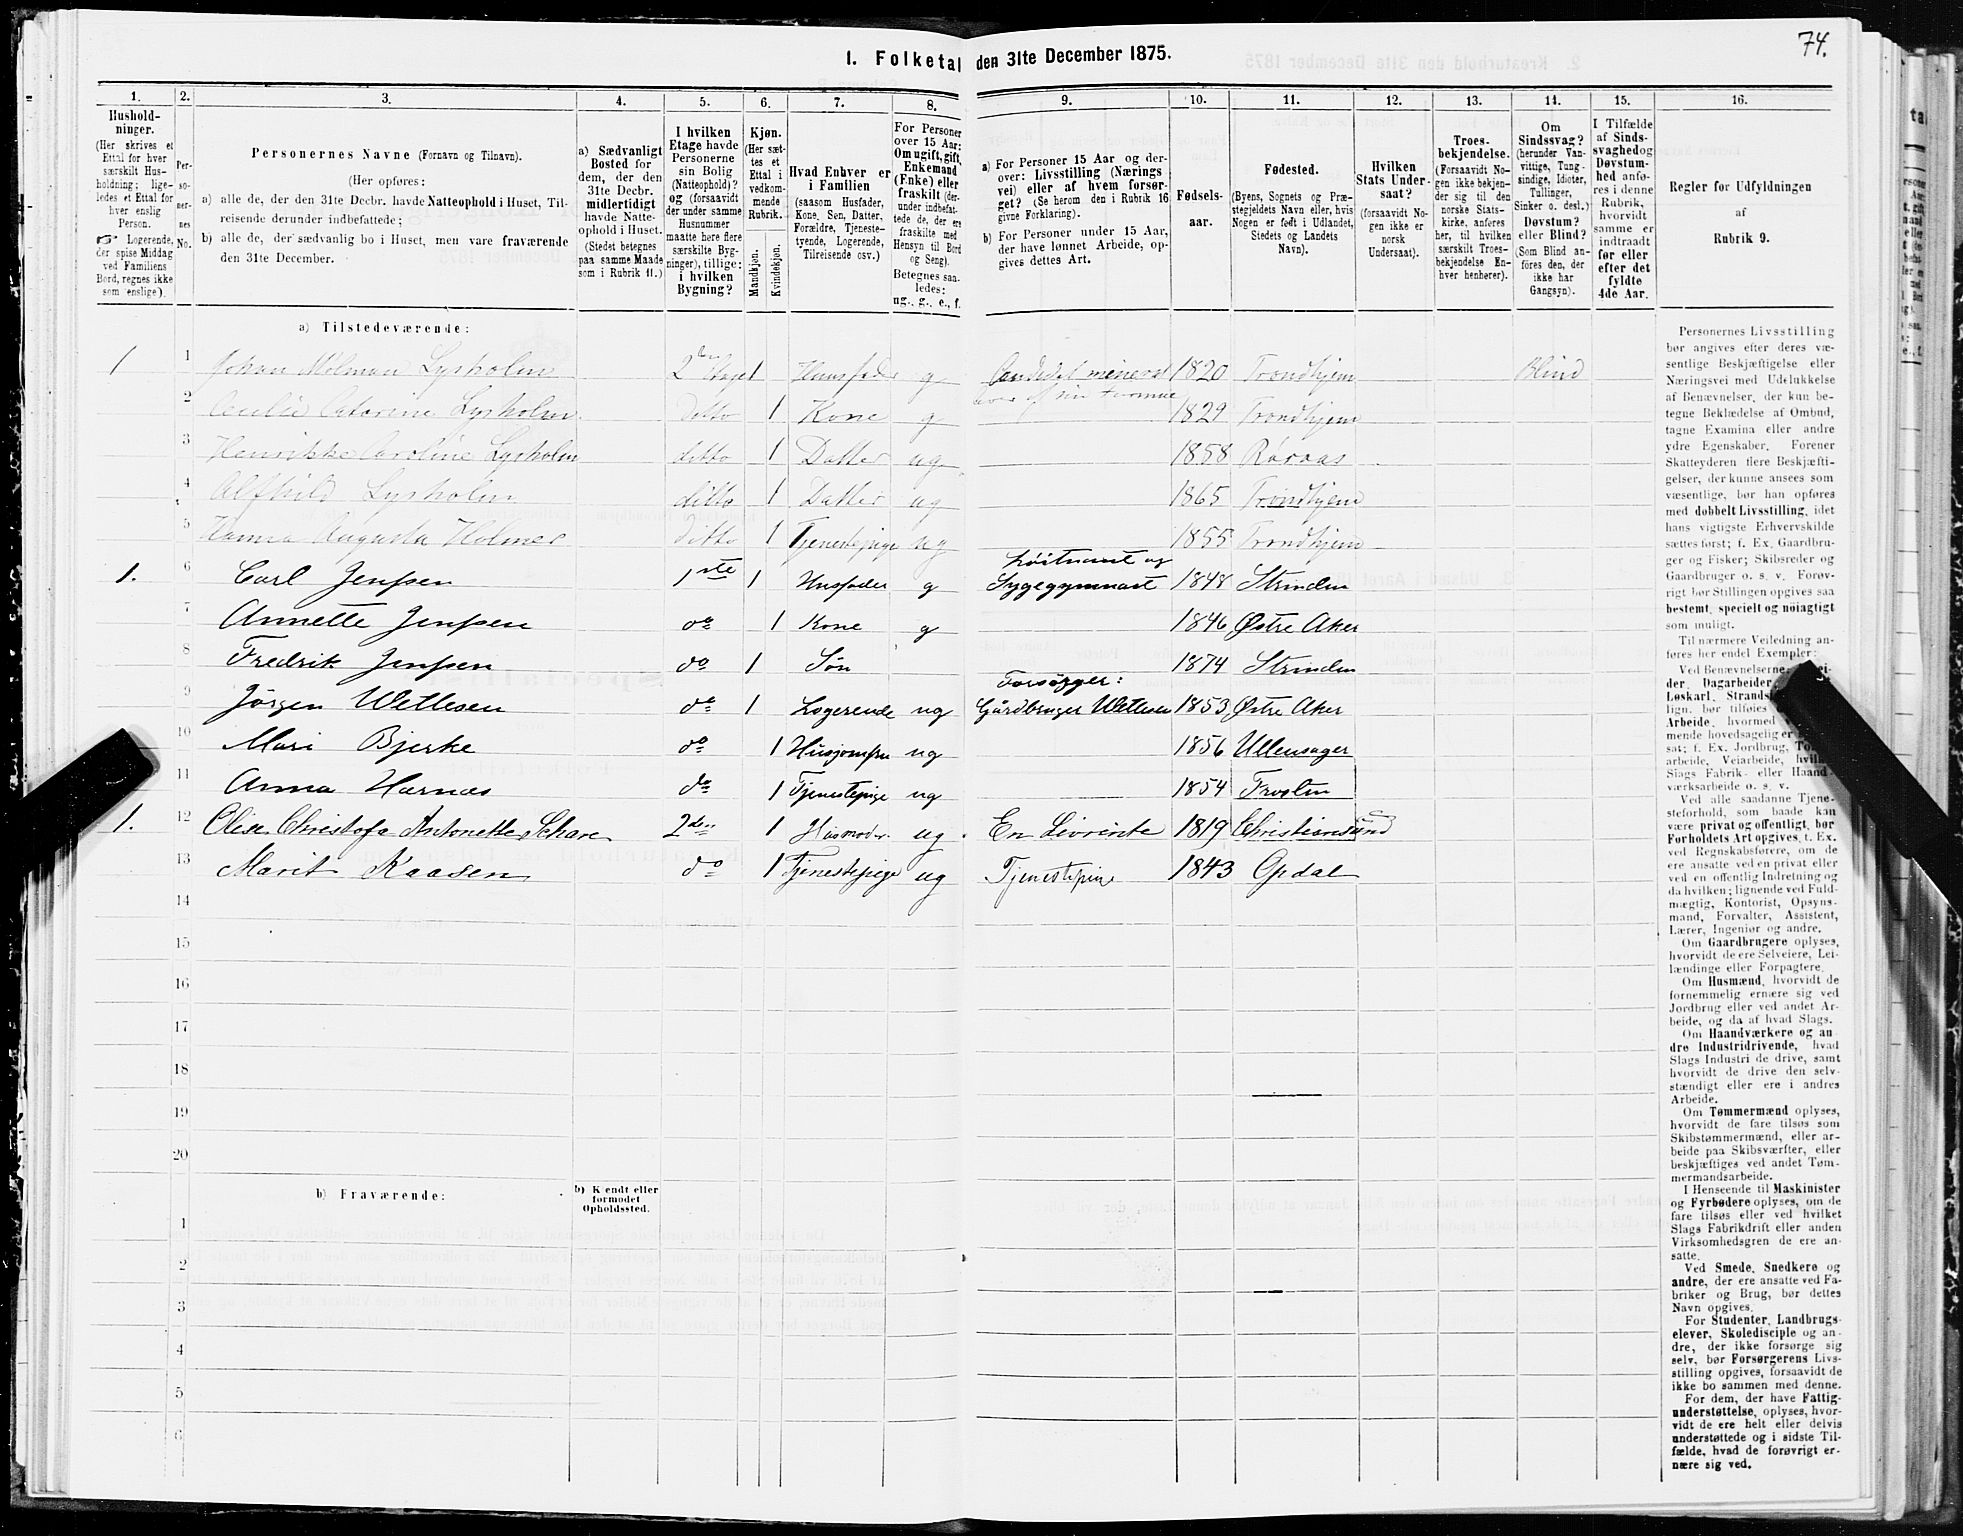 74.
1. Folketal den 31te December 1875.
1. 2. 3. 4. 5. 6. 7. 8. 9. 10. 11. 12. 13. 14. 15. 16.
Husholdninger.
(Her skrives et
Ettal for hver
særskilt Husholdning;
ligeledes et Ettal for
hver enslig
Person.
☞ Logerende,
der spise Middag
ved Familiens
Bord, regnes ikke
som enslige).
Personernes No.
Personernes Navne (Fornavn og Tilnavn).
(Her opføres:
a) alle de, der den 31te Decbr. havde Natteophold i Huset, Tilreisende derunder indbefattede;
b) alle de, der sædvanlig bo i Huset, men vare fraværende
den 31te December.
a) Sædvanligt
Bosted for
dem, der den
31te Decbr.
midlertidigt
havde Natteophold i Huset.
(Stedet betegnes
paa samme Maade
som i Rubrik 11.)
I hvilken
Etage havde
Personerne
sin Bolig
(Natteophold)?
og (forsaavidt
der under samme
Husnummer
maatte høre flere
særskilte Bygninger), tillige:
i hvilken
Bygning?
Kjøn.
(Her sættes et
Ettal i
vedkommende
Rubrik.)
Mandkjøn.
Kvindekjøn.
Hvad Enhver er
i Familien
(saasom Husfader,
Kone, Søn, Datter,
Forældre, Tjenestetyende, Logerende,
Tilreisende osv.)
For Personer
over 15 Aar:
Om ugift, gift,
Enkemand
(Enke) eller
fraskilt (derunder indbefattede de, der ere
fraskilte med
Hensyn til Bord
og Seng).
Betegnes saaledes:
ug., g., e., f.
a) For Personer 15 Aar og derover: Livsstilling (Næringsvei) eller af hvem forsørget? (Se herom den i Rubrik 16
givne Forklaring).
b) For Personer under 15 Aar,
der have lønnet Arbeide, opgives dettes Art.
Fødselsaar.
Fødested.
(Byens, Sognets og Præstegjeldets Navn eller, hvis
Nogen er født i Udlandet,
Stedets og Landets
Navn).
Hvilken
Stats Undersaat?
(forsaavidt Nogen ikke er
norsk
Undersaat).
Troesbekjendelse.
(Forsaavidt Nogen ikke bekjender sig til den
norske Statskirke, anføres
her, til hvilken
særskilt Troesbekjendelse Enhver henhører).
Om
Sindssvag?
(herunder Vanvittige, Tungsindige, Idioter,
Tullinger,
Sinker o. desl.)
Døvstum?
eller Blind?
(Som Blind anføres den, der
ikke har
Gangsyn).
I Tilfælde
af Sindssvaghed og
Døvstumhed anføres i denne
Rubrik,
hvorvidt
samme er
indtraadt
før eller
efter det
fyldte
4de Aar.
Regler for Udfyldningen
af
Rubrik 9.
a) Tilstedeværende:
1 1 Johan Mølman Lysholm 2den Etage 1 Huusfader g Candidat mineral 1820 Trondhjem Blind
lever af sin Formue
2 Cecilie Catarine Lysholm ditto 1 Kone g 1829 Trondhjem
3 Henrikke Caroline Lysholm ditto 1 Datter ug 1858 Røraas
4 Alfhild Lysholm ditto 1 Datter ug 1865 Trondhjem
5 Hanna Augusta Holmer ditto 1 Tjenestepige ug 1855 Trondhjem
Løitnant og
1. 6 Carl Jenssen 1ste 1 Husfader g Sygegymnast 1848 Strinden
7 Annette Jenssen do 1 Kone g 1846 Østre Aker
8 Fredrik Jenssen do 1 Søn 1874 Strinden
Forsørger:
9 Jørgen Wetlesen do 1 Logerende ug Gårdbruger Wetlesen 1853 Østre Aker
10 Mari Bjerke do 1 Husjomfru ug 1856 Ullensager
11 Anna Hernæs do 1 Tjenestepige ug 1854 Frosten
1. 12 Elise Christofa Antonette Schare 2den 1 Husmoder ug. En Livrente 1819 Christiansund
13 Marit Kaasen do 1 Tjenestepige ug Tjenestepige 1843 Opdal
14
15
16
17
18
19
20
b) Fraværende:
b) Kjendt eller
formodet
Opholdssted.
1
2
3
4
5
6
Personernes Livsstilling
bør angives efter deres væsentlige Beskjæftigelse eller
Næringsvei med Udelukkelse
af Benævnelser, der kun betegne Beklædelse af Ombud,
tagne Examina eller andre
ydre Egenskaber. Forener
Skatteyderen flere Beskjæftigelser, der kunne ansees som
væsentlige, bør han opføres
med dobbelt Livsstilling, idet
hans vigtigste Erhvervskilde
sættes først; f. Ex. Gaardbruger og Fisker; Skibsreder og
Gaardbruger o. s. v. Forøvrigt bør Stillingen opgives saa
bestemt, specielt og nøiagtigt
som muligt.
Til nærmere Veiledning anføres her endel Exempler:
Ved Benævnelserne:
der, Dagarbeider
Løskarl, Strands
lign. bør tilføies
Arbeide, hvormed
mende hovedsagelig er
sat; f. Ex. Jordbrug,
arbeide, Veiarbeide,
Slags Fabrik- eller Haandværksarbeide o. s. v.
Ved alle saadanne Tjenesteforhold, som baade kan
være privat og offentligt, bør
Forholdets Art opgives, t. Ex.
ved Regnskabsførere, om de
ere ansatte ved en privat eller
ved en offentlig Indretning og
da hvilken; lignende ved Fuldmægtig, Kontorist, Opsynsmand, Forvalter, Assistent,
Lærer, Ingeniør og andre.
Om Gaardbrugere oplyses,
hvorvidt de ere Selveiere, Leilændinge eller Forpagtere.
Om Husmænd, hvorvidt de
fornemmelig ernære sig ved
Jordbrug eller ved andet Arbeide, og da af hvad Slags.
Om Haandværkere og andre Industridrivende, hvad
Slags Industri de drive, samt
hvorvidt de drive den selvstændigt eller ere i andres
Arbeide.
Om Tømmermænd oplyses,
hvorvidt de fare tilsøs som
Skibstømmermænd, eller arbeide paa Skibsværfter, eller
beskjæftiges ved andet Tømmermandsarbeide.
I Henseende til Maskinister
og Fyrbødere oplyses, om de
fare tilsøs eller ved hvilket
Slags Fabrikdrift eller anden
Virksomhedsgren de ere ansatte.
Ved Smede, Snedkere og
andre, der ere ansatte ved Fabriker og Brug, bør dettes
Navn opgives.
For Studenter, Landbrugselever, Skoledisciple og andre, der ikke forsørge sig
selv, bør Forsørgerens Livsstilling opgives, forsaavidt de
ikke bo sammen med denne.
For dem, der have Fattigunderstøttelse, oplyses, hvorvidt de ere helt eller delvis
understøttede og i sidste Tilfælde, hvad de forøvrigt ernære sig ved.